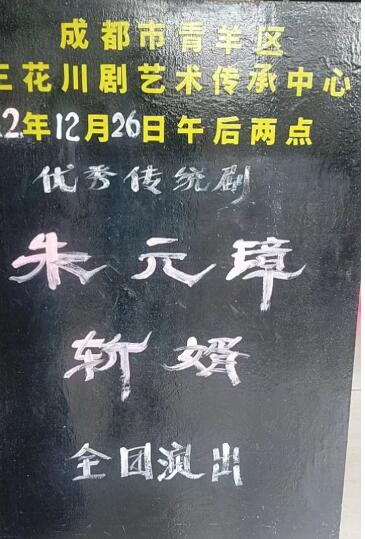 成都市青羊区
三花川剧艺术传承中心
2年12月26日午后两点
优秀传统剧
朱元璋
斩婿
全团演出